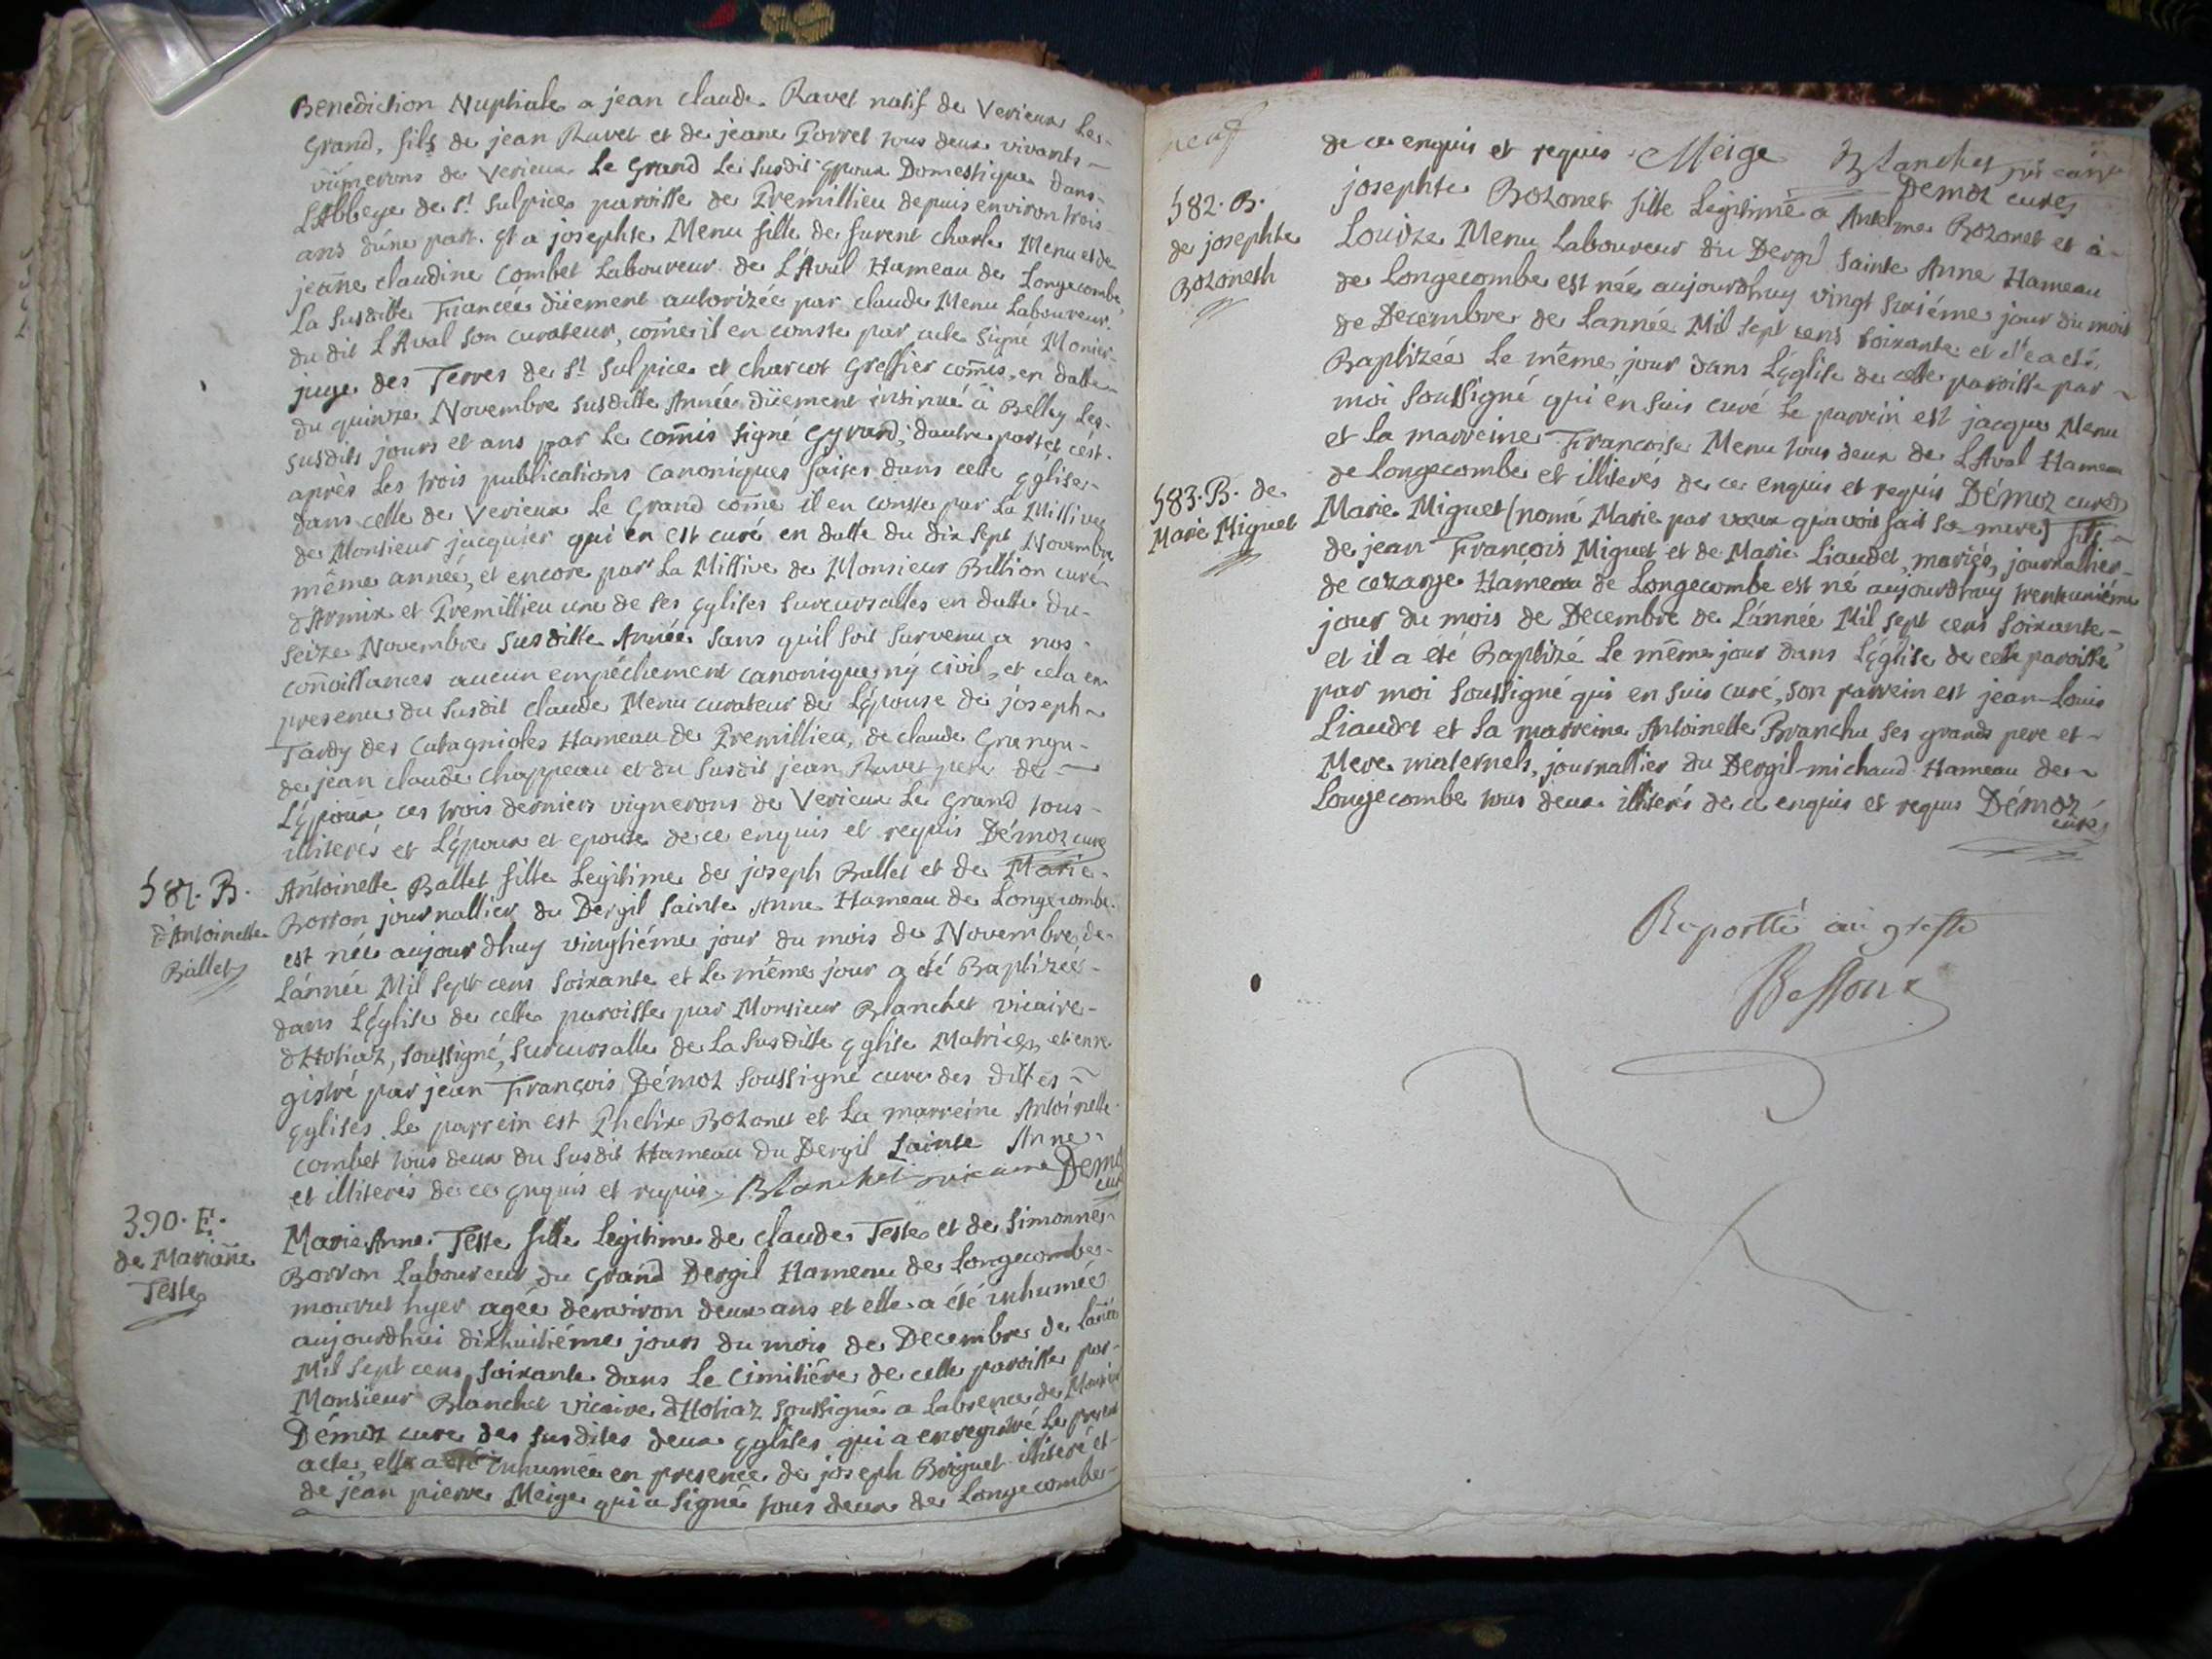 Benediction Nuptiale a jean claude Ravet natif de Verieux Le-
Grand, fils de jean Ravet et de jeane Porret tous deux vivants
vignerons de Verieux Le Grand Le susdit Epoux Domestique dans
L'Abbeye de St Sulpice paroisse de Premillieu depuis environ trois
ans d'une part. Et a josephte Menu fille de furent charle Menu et de
jeañe claudine Combet Laboureur de L'Aval Hameau de Longecombe,
La susditte Fiancée düement autorizée par claude Menu Laboureur
du dit L'Aval son curateur, com̃e il en conste par acte signé Monier
juge des Terres de St Sulpice et charcot Greffier com̃is, en datte
du quinze Novembre susditte Année düement insinué à Belley Les
susdits jours et ans par Le com̃is signé Gyrard, dautre part et c'est
après Les trois publications canoniques faites dans cette Eglise
dans celle de Verieux Le Grand com̃e il en conste par La Missive
de Monsieur jacquier qui en est curé en datte du dix sept Novembre
même année, et encore par La Missive de Monsieur Billion curé
d'Armix et Premillieu une de ses Eglises sucursalles en datte du
seize Novembre susditte Année sans qu'il soit survenu a nos
coñoissances aucun empêchement canonique ny civil, et cela en
presence du susdit claude Menu curateur de L'épouse de joseph
Tardy des Catagnioles Hameau de Premillieu, de claude Grangu-
de jean claude Chappeau et du susdit jean Ravet pere de
L'époux ces trois derniers vignerons de Verieux Le Grand tous
illiterés et L'époux et epouse de ce enquis et requis Démoz curé
581. B.
d'Antoinette
Ballet
Antoinette Ballet fille Legitime de joseph Ballet et de Marie
Borron journallier du Dergil Sainte Anne Hameau de Longecombe
est née aujourdhuy vingtiéme jour du mois de Novembre de
L'année Mil sept cens soixante et Le même jour a été Baptizée
dans L'Eglise de cette paroisse par Monsieur Blanchet vicaire
d'Hotiaz, soussigné, sucursalle de La susditte Eglise Matrice, et enre
gistré par jean François Démoz soussigné curé des dittes
Eglises. Le parrein est Phelix Bozonet et La marreine Antoinette
combet tous deux du susdit Hameau du Dergil Sainte Anne
et illiterés de ce enquis et requis. Blanchet vicaire Demoz
curé
390. E.
de Mariañe
Teste
Marie Anne Teste fille Legitime de claude Teste et de Simonne
Borron Laboureur du Grand Dergil Hameau de Longecombe
mourut hyer agée d'environ deux ans et elle a été inhumée
aujourdhui dixhuitiéme jours du mois de Decembre de L'añée
Mil sept cens soixante dans Le Cimitiére de cette paroisse par
Monsieur Blanchet vicaire d'Hotiaz soussigné a Labsence de Monsieur
Démoz curé des susdites deux Eglises qui a enregistré Le present
acte, elle a été inhumée en presence de joseph Briguet illiteré et
de jean pierre Meige qui a signé tous deux de Longecombe
neuf
de ce enquis et requis Meige Blanchet vicaire
Demoz curé
582. B.
de josephte
Bozoneth
josephte Bozonet fille Legitime a Antelme Bozonet et à
Louize Menu Laboureur du Dergil Sainte Anne Hameau
de Longecombe est née aujourdhuy vingt sixiéme jour du mois
de Decembre de Lannée Mil sept cens soixante et elle a eté
Baptizée Le même jour dans L'Eglise de cette paroisse par
moi soussigné qui en suis curé Le parrein est jacque Menu
et La marreine Francoise Menu tous deux de L'Aval Hameau
de Longecombe et illiterés de ce enquis et requis Démoz curé
583. B. de
Marie Miguet
Marie Miguet (nomé Marie par vœux qu'avoit fait sa mere) fils
de jean François Miguet et de Marie Liaudet, mariés, journallier
de cezarge Hameau de Longecombe est né aujourdhuy trentuniéme
jour du mois de Decembre de L'année Mil sept cens soixante
et il a été Baptizé Le même jour dans L'Eglise de cette paroisse
par moi soussigné qui en suis curé, son parrein est jean-Louis
Liaudet et sa marreine Antoinette Branchu ses grands pere et
Mere maternels, journallier du Dergil-michaud Hameau de
Longecombe tous deux illiterés de ce enquis et requis Démoz
curé
Reportté au greffe